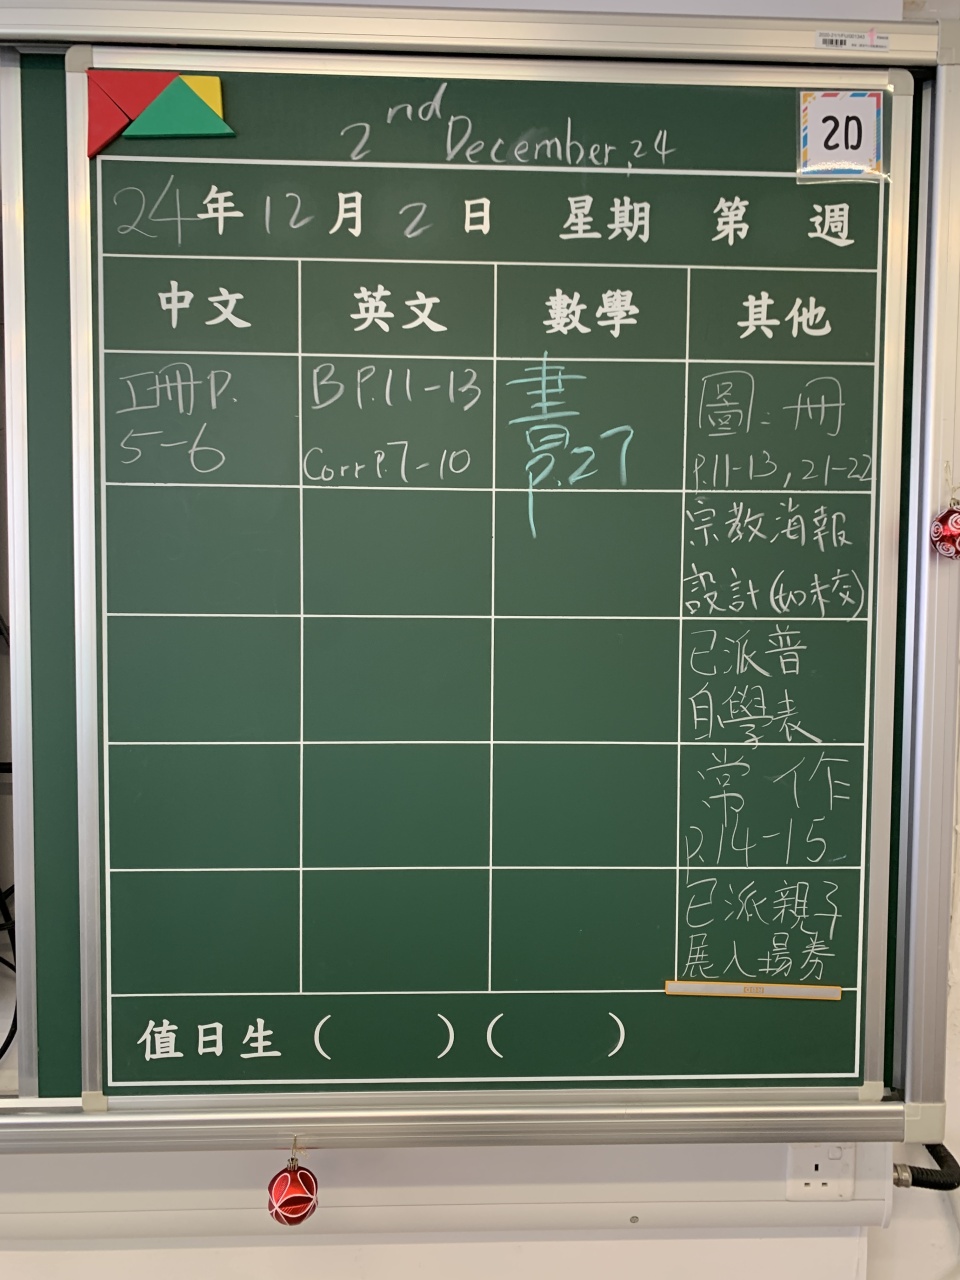 2nd December, 24
2D
24年12月2日 星期 第 週
中文 英文 數學 其他
工冊P.
5-6
B P.11-13
Corr P.7-10
書
p.27
圖：冊
p.11-13, 21-22
宗教海報
設計(如未交)
已派普
自學表
常 作
p.14-15
已派親子
展入場券
值日生 (　　) (　　)